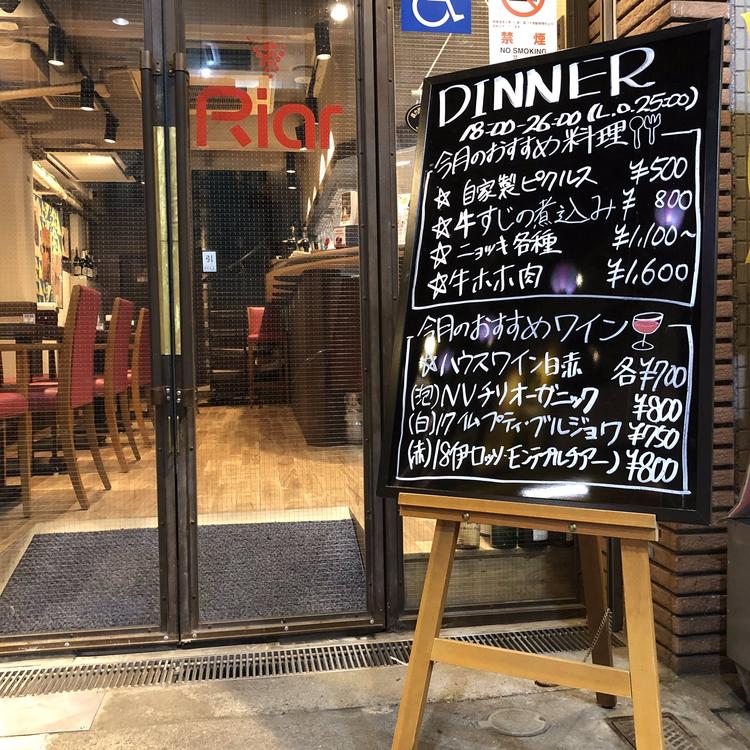 Riar
禁煙
NO SMOKING
引
DINNER
18:00-26:00(L.O.25:00)
今月のおすすめ料理
☆ 自家製ピクルス ¥500
☆ 牛すじの煮込み ¥800
☆ ニョッキ各種 ¥1,100~
☆ 牛ホホ肉 ¥1,600
今月のおすすめワイン
☆ハウスワイン白赤 各¥700
(泡)NVチリオーガニック ¥800
(白)17 仏プティ・ブルジョワ ¥750
(赤)18伊ロッソ・モンテプルチアーノ ¥800